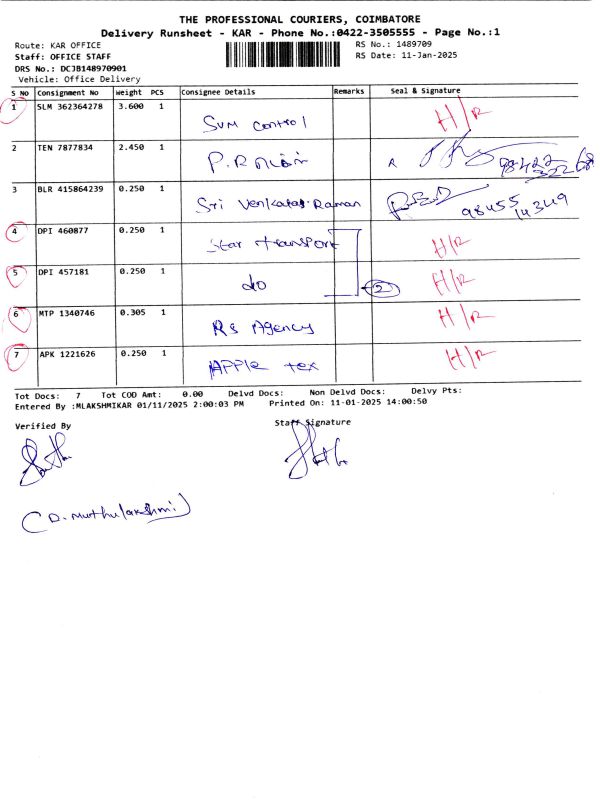 THE PROFESSIONAL COURIERS, COIMBATORE
Delivery Runsheet - KAR - Phone No.:0422-3505555 - Page No.:1
Route: KAR OFFICE
RS No.: 1489709
Staff: OFFICE STAFF
RS Date: 11-Jan-2025
DRS No.: DCJB148970901
Vehicle: Office Delivery
S No Consignment No Weight PCS Consignee Details Remarks Seal & Signature
1 SLM 362364278 3.600 1 SVM Control H/R
2 TEN 7877834 2.450 1
3 BLR 415864239 0.250 1 Sri Venkatas Raman 98455 14349
4 DPI 460877 0.250 1 Star transport H/R
5 DPI 457181 0.250 1 do 2 H/R
6 MTP 1340746 0.305 1 RS Agency H/R
7 APK 1221626 0.250 1 APPle tex H/R
Tot Docs: 7 Tot COD Amt: 0.00 Delvd Docs: Non Delvd Docs: Delvy Pts:
Entered By :MLAKSHMIKAR 01/11/2025 2:00:03 PM Printed On: 11-01-2025 14:00:50
Verified By Staff Signature
(D. Muthulakshmi)